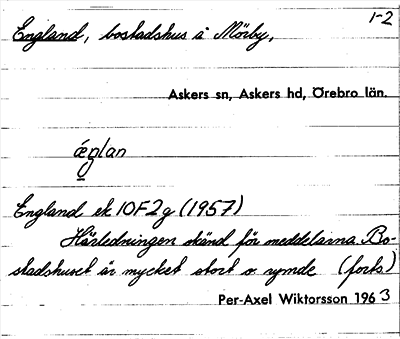 1-2
England, bostadshus å Mörby,
Askers sn, Askers hd, Örebro län.
æglan
England ek 10F2g (1957)
Härledningen okänd för meddelarna. Bo-
stadshuset är mycket stort o rymde (forts)
Per-Axel Wiktorsson 1963